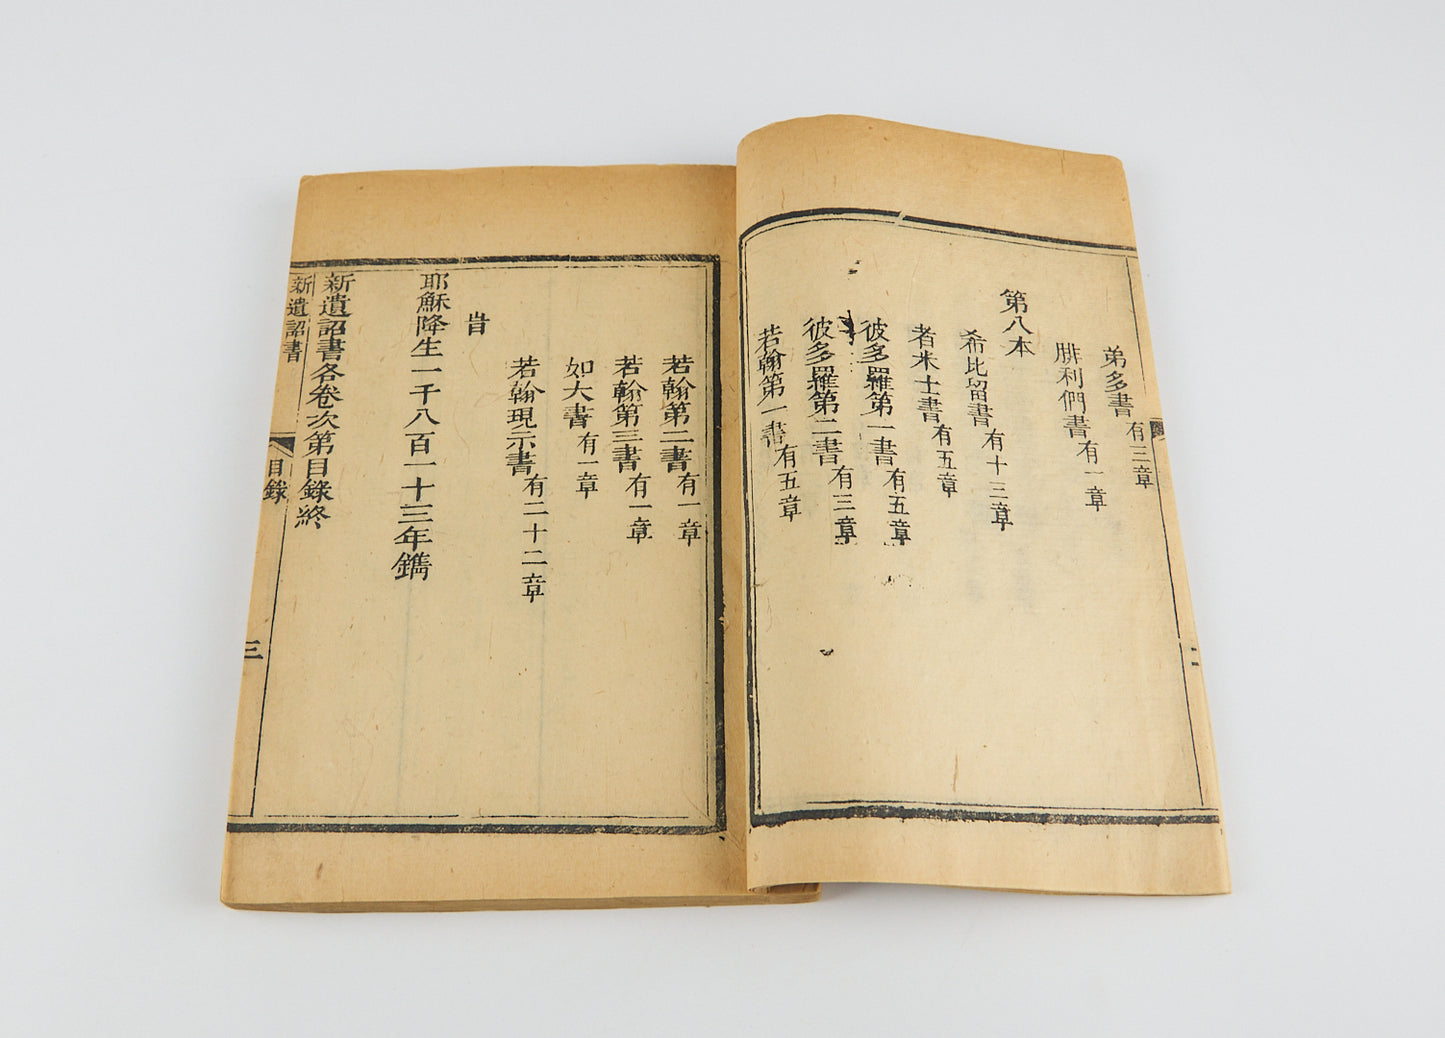 弟多書有三章
腓利們書有一章
第八本
希比留書有十三章
者米士書有五章
彼多羅第一書有五章
彼多羅第二書有三章
若翰第一書有五章
二
若翰第二書有一章
若翰第三書有一章
如大書有一章
若翰現示書有二十二章
旹
耶穌降生一千八百一十三年鐫
新遺詔書各卷次第目錄終
新遺詔書
目錄
三